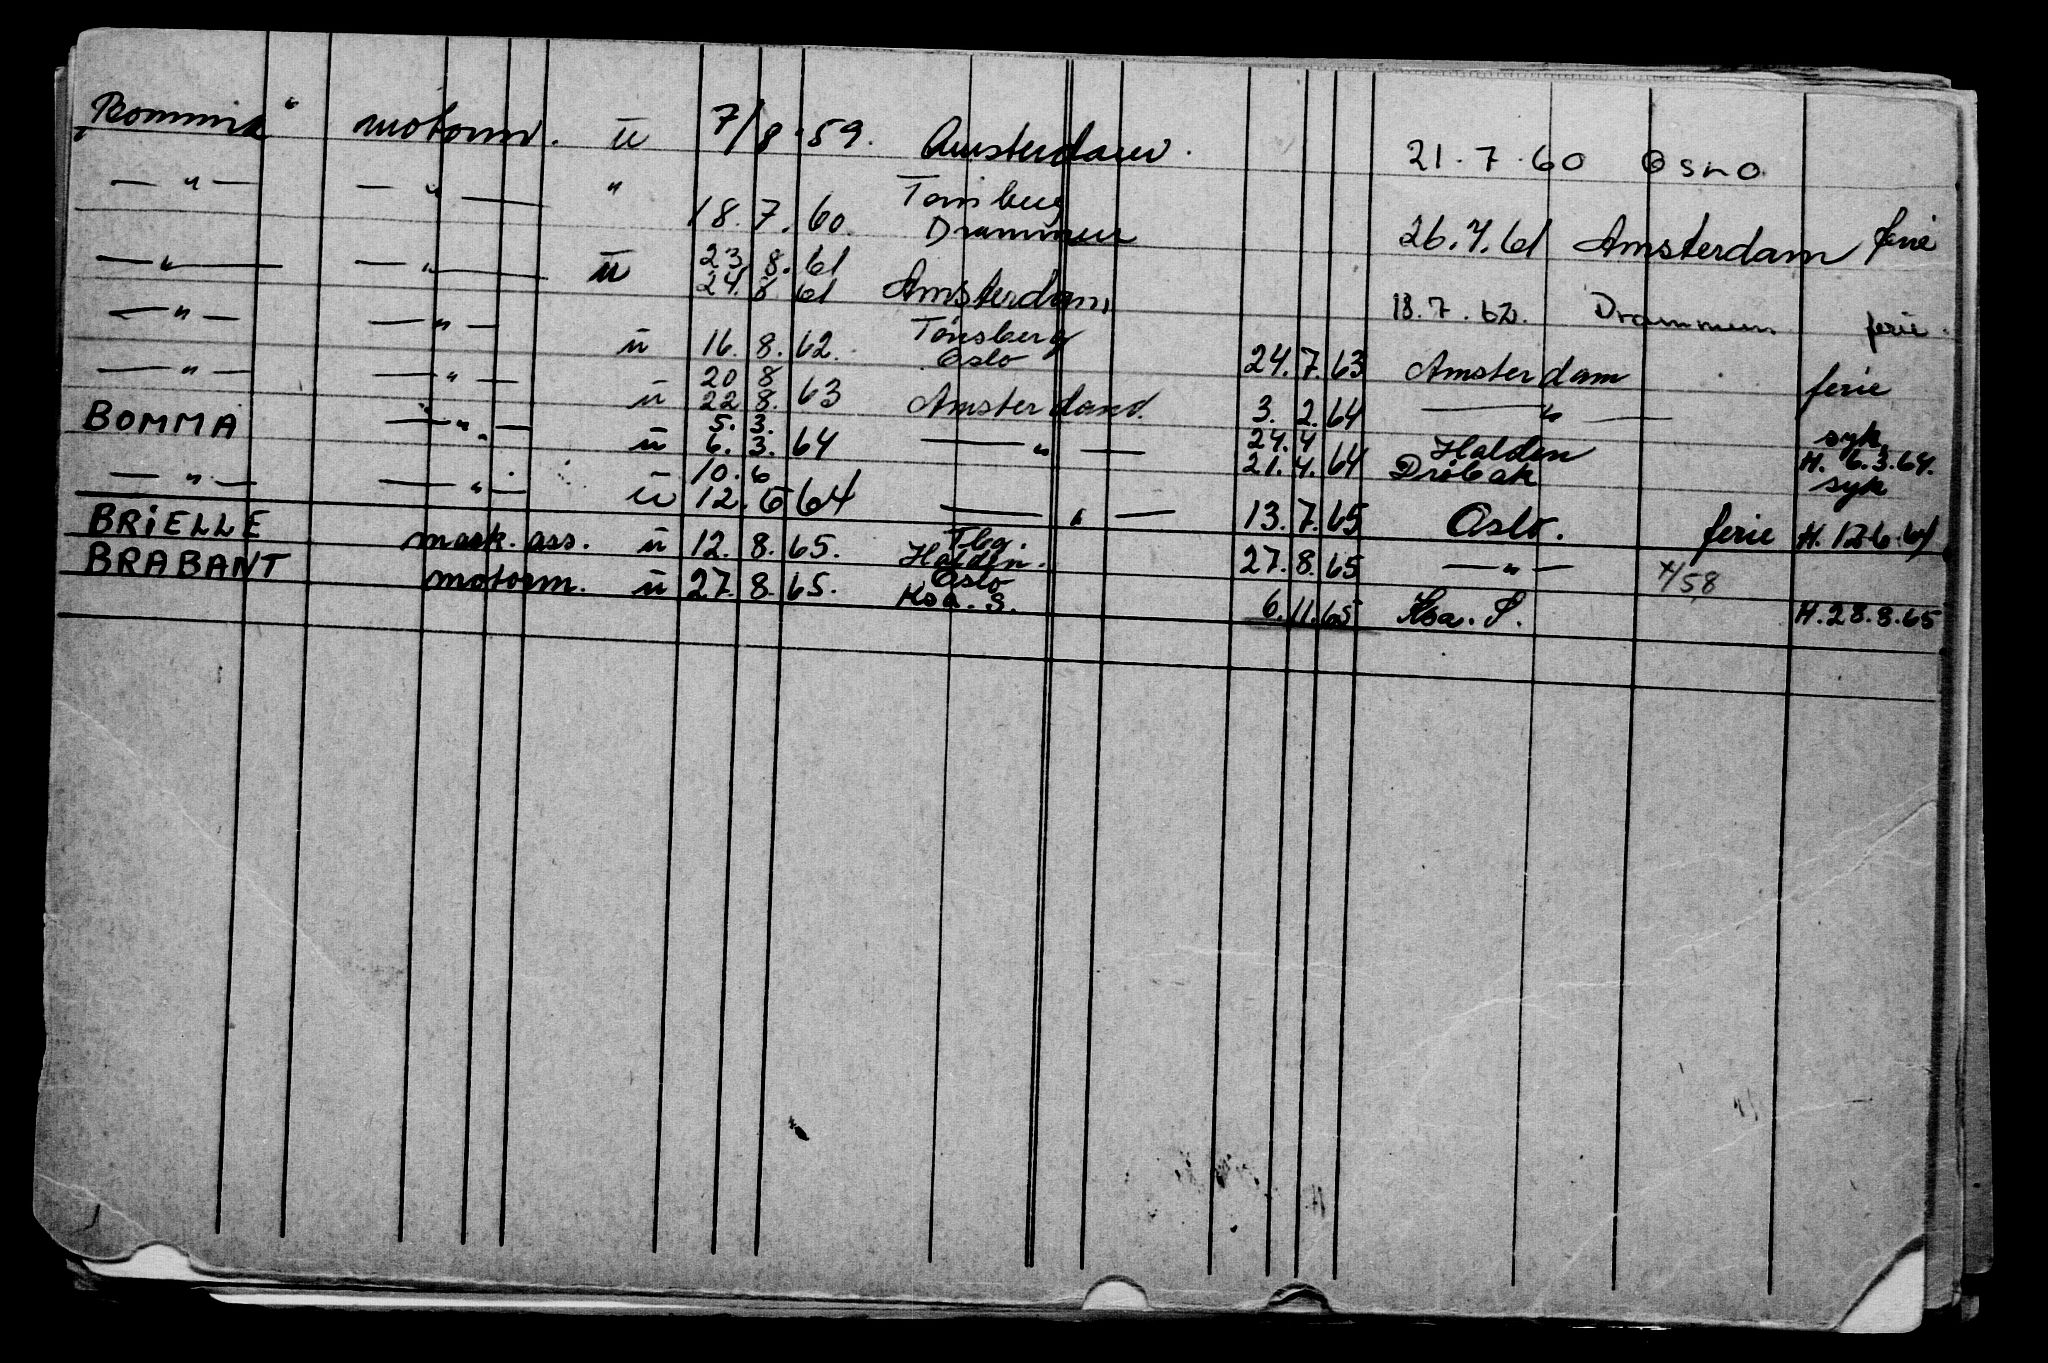 "Bomma" motorm. u 7/8.59. Amsterdam. 21.7.60 OSLO
— " — — " — " 18.7.60. Tønsberg Drammen 26.7.61 Amsterdam ferie
— " — — " — u 23 8. 61 24. 8 61 Amsterdam 18.7.62. Drammen ferie.
— " — — " — u 16. 8. 62. Tønsberg Oslo 24. 7. 63 Amsterdam ferie
— " — — " — u 20 8 22 8. 63 Amsterdam. 3. 2. 64 — " — syk
BOMMA — " — u 5. 3. 6. 3. 64 — " — 24. 4 21. 4. 64 Halden Drøbak H. 6.3.64. syk
— " — — " — u 10. 6 12. 6 64 — " — 13. 7. 65 Oslo. ferie H. 12.6.64
BRiELLE mask. ass. u 12. 8. 65. Tbg. Halden. 27. 8. 65 — " — 4/58
BRABANT motorm. u 27. 8. 65. Oslo Koa. S. 6. 11. 65 Koa. S. H. 28.8.65